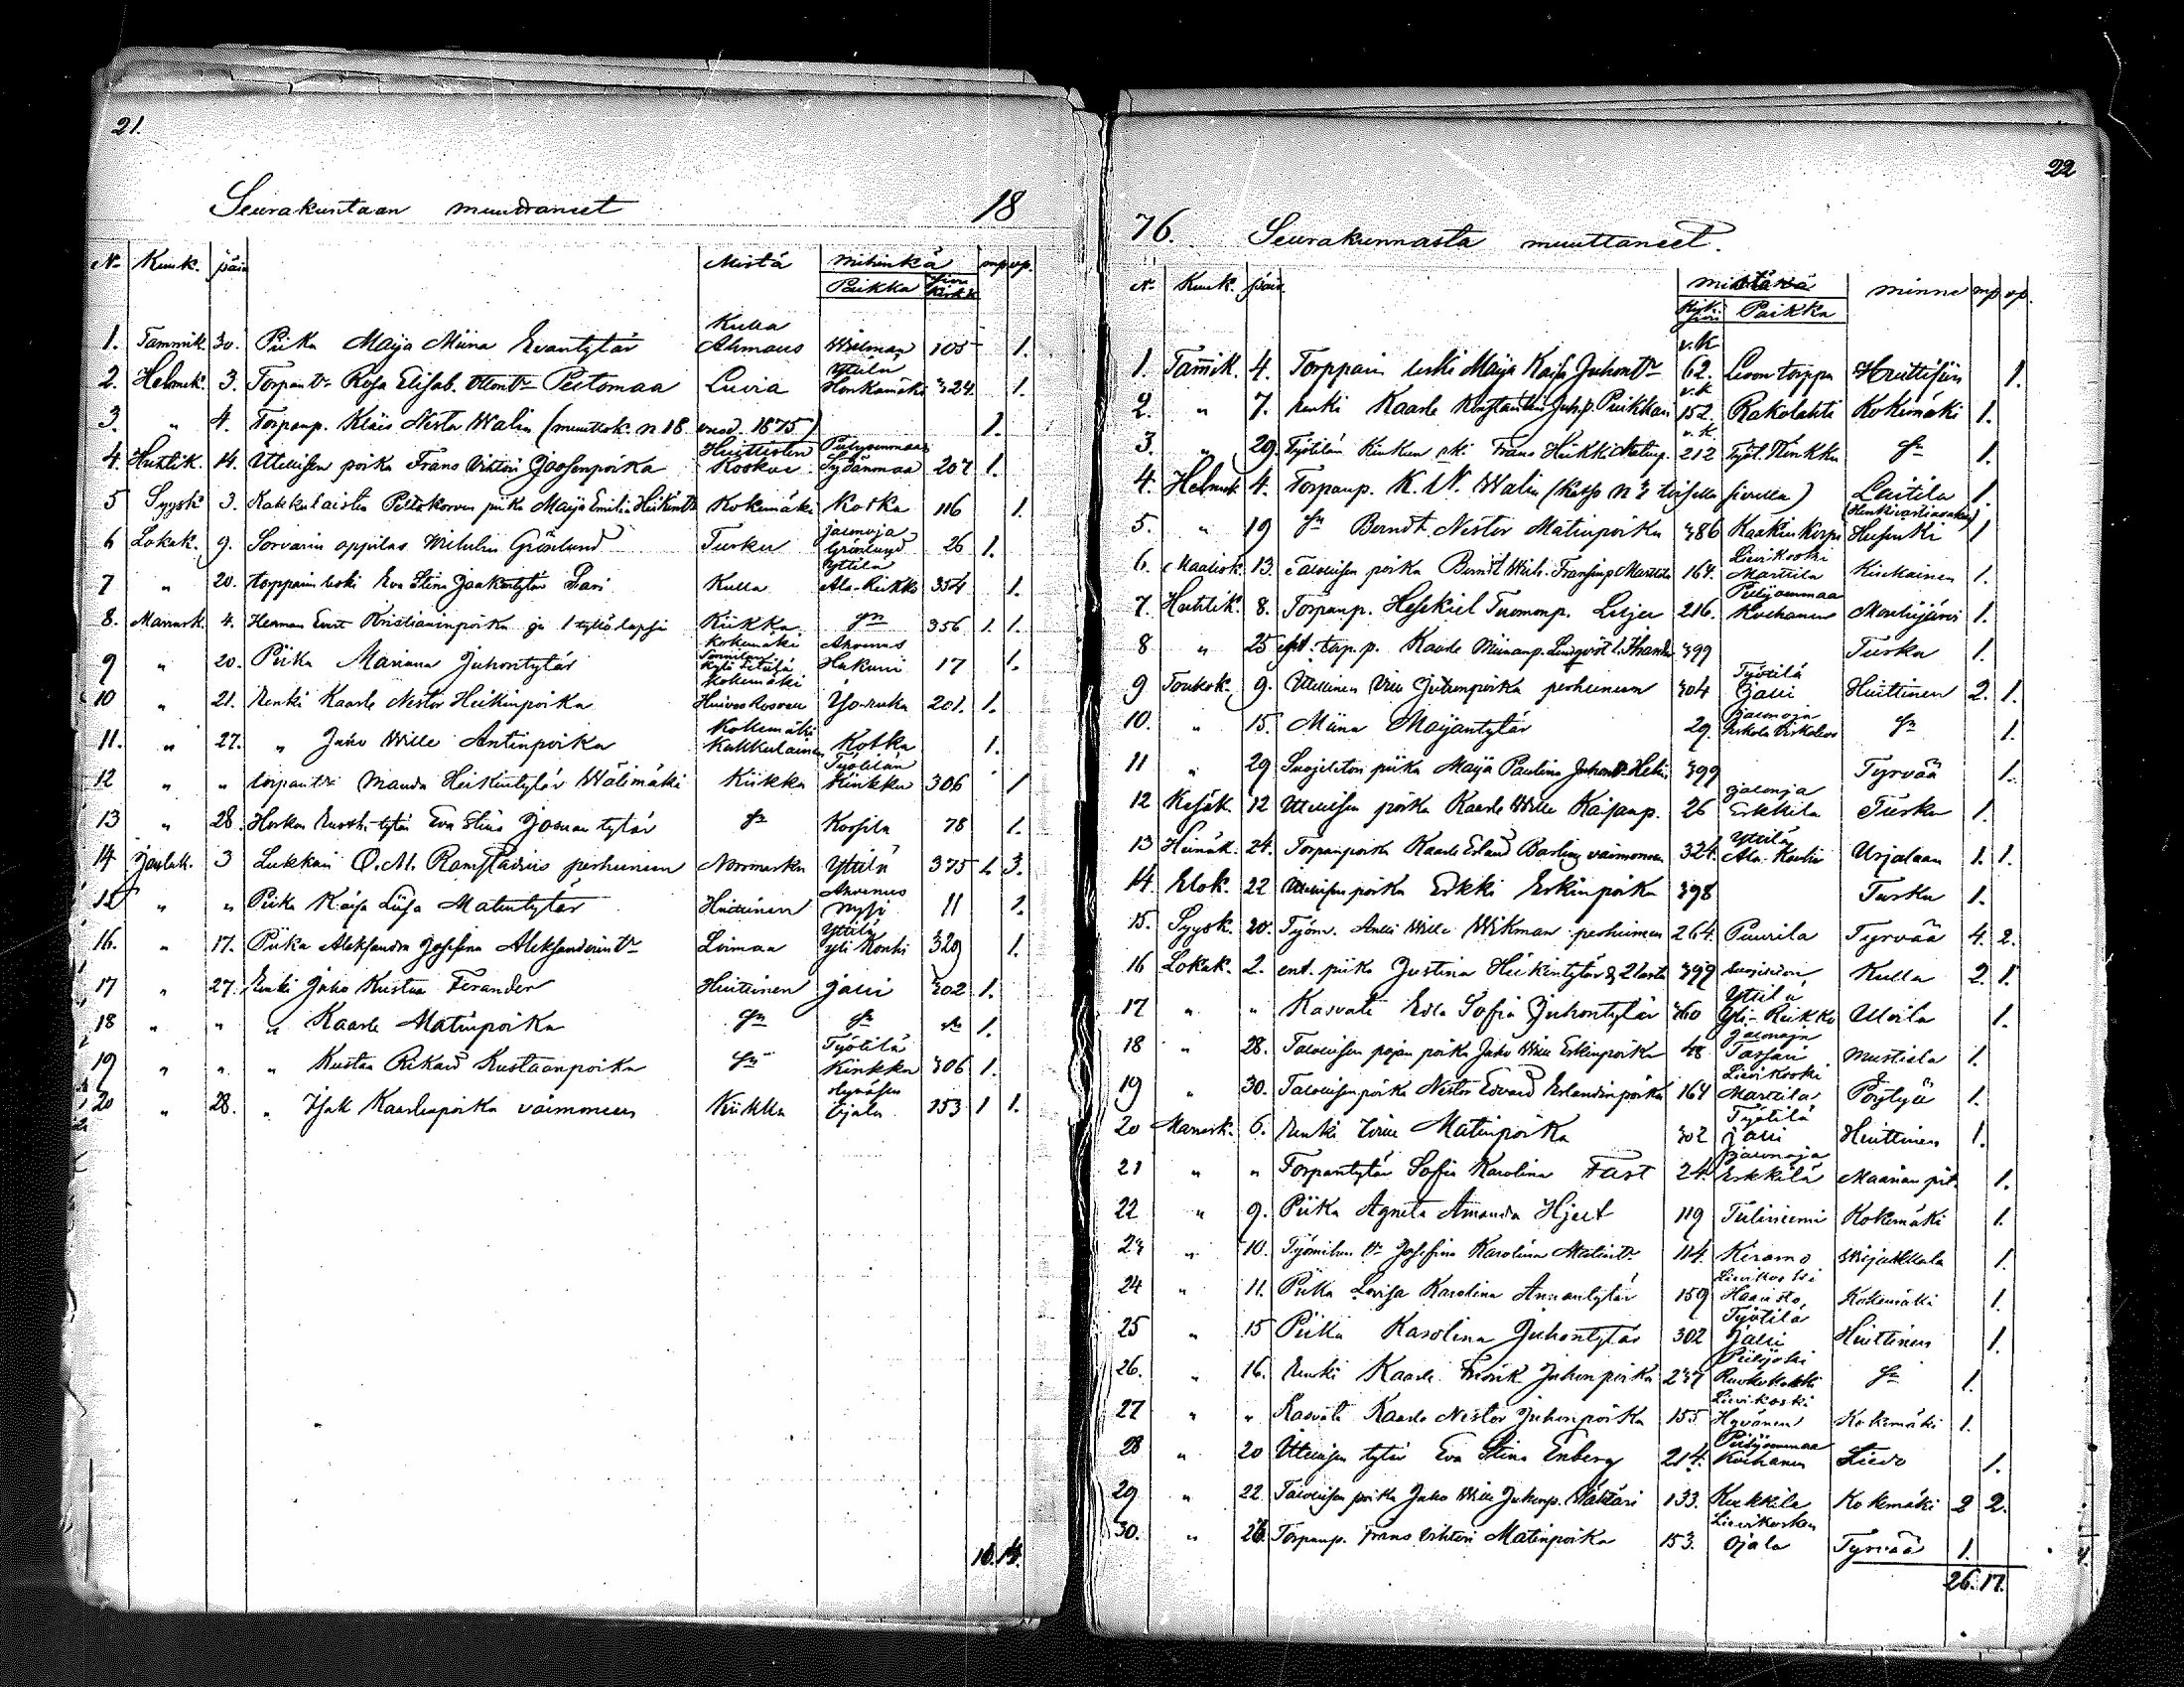 21.
Seurakuntaan muuttaneet 18
No Kuuk. päiv Mistä mihinkä mp vp.
Paikka Sivu Kirk.k
1. Tammik. 30. Piika Maija Miina Evantytär Kulla Ahmaus Wilman 105 1.
2. Helmik. 3. Torpantr Rosa Elisab. Peltomaa Luvia Yttilä Honkamäki 324. 1.
3. " 4. Torpanp. Kläis Nestor Walin (muuttok. n 18 vuod. 1875) 1.
4. Huhtik. 14. Ittellisen poika Frans Vihtori Joosenpoika Huittisten Koskue Sydänmaa 207 1.
5 Syysk. 3. Kakkulaisten Peltokorven piika Maija Emilia Heikintr Kokemäki Kotka 116 1.
6 Lokak. 9. Sorvarin oppilas Grönlund Turku Jalonoja Grönlund 26 1.
7 " 20. torppain leski Eva Stina Jaakontytär Kulla Yttilä Ala-Kukko 354 1.
8. Marrask. 4. Herman Evert Kristianinpoika ja 1 tyttölapsi Kiikka sn 356 1. 1.
9 " 20. Piika Mariana Juhontytär Kokemäki Ahvenus Hukuri 17 1.
10 " 21. Renki Kaarle Nestor Heikinpoika Kokemäki Yso-ruka 201. 1.
11. " 27. " Juho Wille Antinpoika Kokemäki Kakkulainen Kotka 1.
12 " " torpantr Manda Heikintytär Wälimäki Kiikka Työtilän Kinkku 306 1
13 " 28. Eva Stina Joonan tytär sn Kossila 78 1.
14 Joulak. 3 Lukkari O. M. Ramstadius perheineen Normarkku Yttilä 375 1. 3.
15 " " Piika Kaisa Liisa Matintytär Huittinen Ahvenus 11 1.
16. " 17. Piika Aleksandra Josefina Aleksanderintr Loimaa Yttilä yli Kouhi 329 1.
17 " 27. Renki Juho Kustaa Ferander Huittinen Jalli 302 1.
18 " " " Kaarle Matinpoika sn sn 1.
19 " " " Kustaa Rikard Kustaanpoika sn Työtilä Kinkku 306 1.
20 " 28. " Isak Kaarlenpoika vaimoneen Kiikka Ojala 153 1 1.
16. 14.
22
76. Seurakunnasta muuttaneet.
No Kuuk. päiv mistä minne mp vp.
Kirk. sivu Paikka
1. Tamik. 4. Torppain leski Maija Kaisa Juhontr v.k 62. Levon torppa Huittisiin 1.
2. " 7. Renki Kaarle Konstantin Juh.p. Piikkari v.k 152. Rakolahti Kokemäki 1.
3. " 29. Työtilän Kinkun Frans Heikki Matinp. v.k. 212 Työt. Kinkku sn 1.
4. Helmik 4. Torpanp. K. N. Walin (Katso n 3 toisella sivulla) Laitila 1.
5. " 19 sn Berndt Nestor Matinpoika 386 Kaakinkorpi Helsinki 1
6. Maalisk. 13. Talollisen poika Berndt Wilh. Fransinp Marttila 164. Lievikoski Marttila Kiukainen 1.
7 Huhtik. 8. Torpanp. Hesekiel Tuomonp. Lilja 216. Piilijoenmaa Kuohanen Mouhijärvi 1.
8 " 25 torp.p. Kaarle Miinanp. Lindqvist 399 Turku 1.
9 Toukok. 9. Ittellinen Juhanpoika perheineen 304 Työtilä Jalli Huittinen 2. 1.
10. " 15. Miina Maijantytär 29. Jalonoja sn 1.
11 " 29 Suojeleton piika Maija Paulina 399 Tyrvää 1.
12 Kesäk. 12 Ittellisen poika Kaarle Wille Kaisanp. 26 Jalonoja Erkkilä Turku 1.
13 Heinäk. 24. Torpanpoika Kaarle Erland vaimoneen 324. Yttilä Urjalaan 1. 1.
14. Elok. 22 Ittellisen poika Erkki Erkinpoika 398 Turku 1.
15. Syysk. 30. Työm. Antti Wille Wikman perheineen 264. Puurila Tyrvää 4. 2.
16 Lokak. 2. ent. piika Justina Heikintytär & 2 lasta 399 Kulla 2. 1.
17 " " Kasvatti Edla Sofia Juhontytär 360 Yttilä Yli-Kukko Ulvila 1.
18 " 28. Talollisen pojan poika Juho Wille Erkinpoika 48 Jalonoja Tassari Mustiala 1.
19 " 30. Talollisen poika Nestor Edvard Erlandinpoika 164 Lievikoski Marttila Pöytyä 1.
20 Marrask. 6. Renki Matinpoika 302 Työtilä Jalli Huittinen 1.
21 " " Torpantytär Sofia Karolina Fast 24. Jalonoja Erkkilä Maarian pit. 1.
22 " 9. Piika Agneta Amanda Hjert 119 Tuliniemi Kokemäki 1.
23 " 10. Työmihen tr Josefina Karolina Matintr 114. Kiramo Wirjakkala 1.
24 " 11. Piika Lovisa Karolina Annantytär 159 Lievikoski Haavisto Kokemäki 1.
25 " 15 Piika Karolina Juhontytär 302 Työtilä Jalli Huittinen 1.
26. " 16. Renki Kaarle Fredrik Juhonpoika 237 Piilijoki sn 1.
27 " " Kasvatti Kaarle Nestor Juhonpoika 155 Lievikoski Hyvönen Kokemäki 1.
28 " 20 Ittellisen tytär Eva Stina Enberg 214. Piilijoenmaa Kuohanen Lieto 1.
29 " 22. Talollisen poika Juho Wille Juhonp. 133. Kukkila Kokemäki 2 2.
30. " 26. Torpanp. Frans Vihtori Matinpoika 153. Lievikosken Ojala Tyrvää 1.
26. 17.